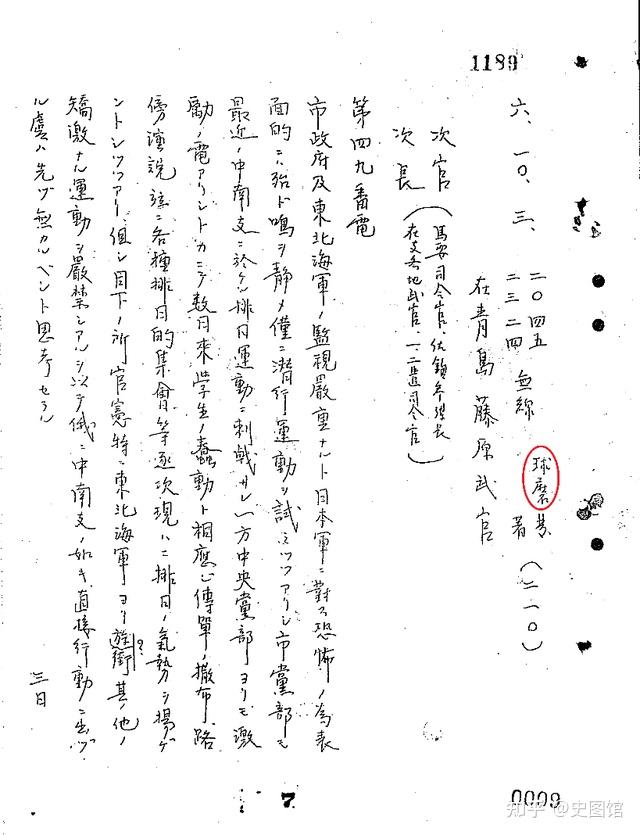 1189
六、一〇、三、
二〇四五
二三二四 無線 球磨發
着 (二一〇)
在青島 藤原武官
次官
次長
(馬要司令官、佐鎮参謀長
在支各地武官、一、二遣司令官)
第四九番電
市政府及東北海軍ノ監視嚴重ナルト日本軍ニ對スル恐怖ノ為表
面的ニハ殆ド鳴ヲ静メ僅ニ潜行運動ヲ試ミツツアリシ市黨部モ
最近ノ中南支ニ於ケル排日運動ニ刺戟サレ一方中央黨部ヨリモ激
勵ノ電アリシトカニテ数日来学生ノ蠢動ト相應ジ傳單ノ撒布、路
傍演説竝ニ各種排日的集會等逐次現ハレ排日ノ氣勢ヲ揚ゲ
ントシツツアリ、但シ目下ノ所官憲特ニ東北海軍ヨリ遊街其ノ他ノ
矯激ナル運動ヲ嚴禁シアルヲ以テ俄ニ中南支ノ如キ直接行動ニ出ヅ
ル虞ハ先ヅ無カルベシト思考セラル
三日
7
0009
知乎 @史图馆